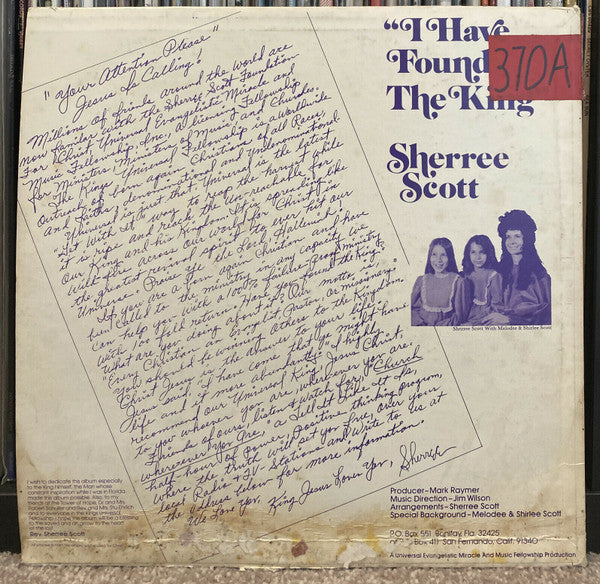 "Your Attention Please"
Jesus Is Calling!
Millions of friends around the world are
now familar with the Sherree Scott Foundation
For Christ Universal Evangelistic Miracle and
Music Fellowship, Inc. Alliance & Fellowship
for Ministers, Ministers of Music and Churches.
The Kings Universal Fellowship is a worldwide
Outreach of born again Christians of all Races,
and Faiths, denominational and Undenominational
Universal is just that, Universal is the latest
Get With It way to reap the harvest while
it is ripe and reach the Un-reachable for
Our King and his Kingdom. It is spreading like
wild fire across Our world for Christ in
the greatest revival spirit to ever hit our
Universe. Praise Ye the Lord, Hallelujah!
If you are a born again Christian and have
been called to the ministry in any capacity we
can help you with a 100% failure proof ministry
with 100 fold return. Have you found the King?
What are you doing about it? Our motto is
"Every Christian an Evangelist, Pastor, or missionary."
You should be winning others to the Kingdom.
Christ Jesus is the answer to your life!
Jesus said, "I have come that ye might have
life and it more abundantly." I highly
recommend our Universal King, Jesus Christ,
to you whoever you are, wherever you are.
Friends of ours, listen & watch for, "Church
Wherever You Are," a Tell It Like It Is,
half hour of power, positive thinking program,
where the truth will set you free, over your
local Radio & TV Stations and Write to us at
the address below for more information.
We Love You, King Jesus Loves You, Sherree
"I Have
Found
The King
370A
Sherree
Scott
Sherree Scott With Melodee & Shirlee Scott
I wish to dedicate this album especially
to the King himself, the Man whose
constant inspiration while I was in Florida
made this album possible. Also, to my
friends at the Tower of Hope, Dr. and Mrs.
Robert Schuller and Rev. and Mrs. Stu Ehrlich
and to everyone in the Kings Universal
Fellowship. I pray this album will be a blessing
to the saved and an arrow to the heart
of the lost.
Rev. Sherree Scott
Producer–Mark Raymer
Music Direction–Jim Wilson
Arrangements–Sherree Scott
Special Background–Melodee & Shirlee Scott
P.O. Box 551, Bonifay, Fla. 32425
Box 411, San Fernando, Calif. 91340
A Universal Evangelistic Miracle And Music Fellowship Production